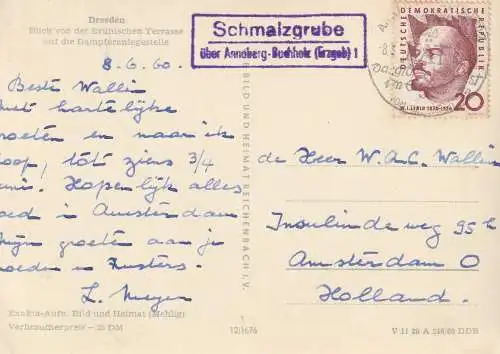 Dresden
Blick von der Brühlschen Terrasse
auf die Dampferanlegestelle
8.6.60.
Beste Wallin
met hartelijke
groeten en naar ik
hoop, tot ziens 3/4
Juni. Hopenlijk alles
goed in Amsterdam
Mijn groeten aan je
moeder en Zusters.
L. Meyer
Exakta-Aufn. Bild und Heimat (Mehlig)
Verbraucherpreis — 25 DM
BILD UND HEIMAT REICHENBACH i. V.
12/1676
Schmalzgrube
über Annaberg-Buchholz (Erzgeb) 1
DEUTSCHE DEMOKRATISCHE REPUBLIK
W. I. LENIN 1870-1924
20
de Heer W.A.C. Wallin
Insulinde weg 95 h
Amsterdam O
Holland.
V 11 28 A 346/60 DDR